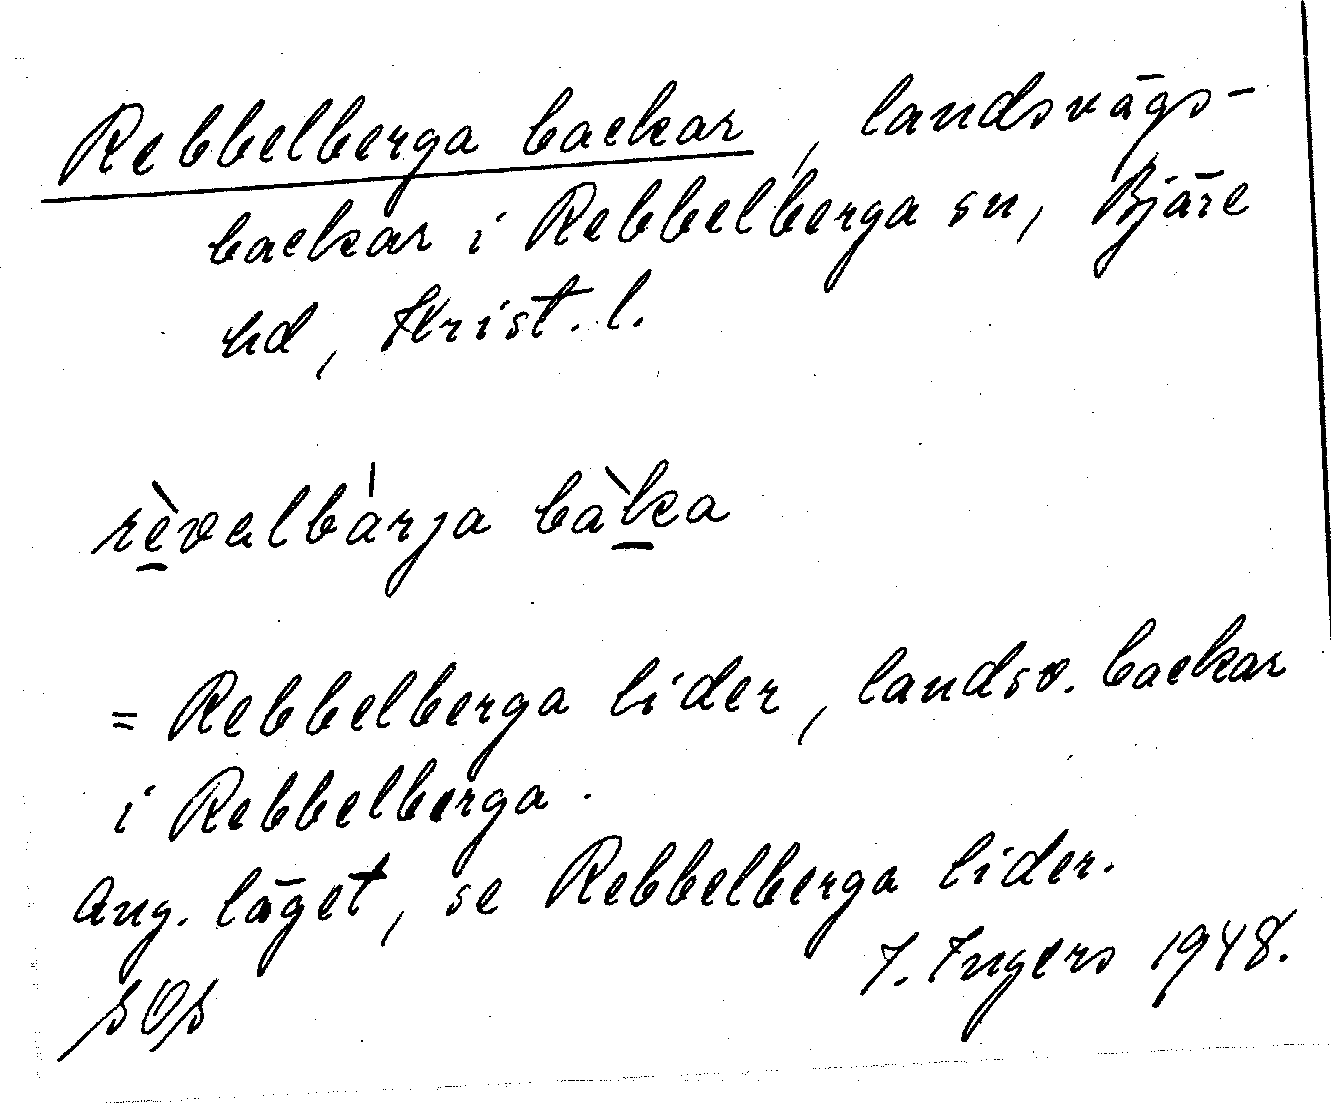 Rebbelberga backar, landsvägs-
backar i Rebbelberga sn, Bjäre
hd, Krist. l.
rèvalbárja bàka
= Rebbelberga lider, landsv. backar
i Rebbelberga.
Ang. läget, se Rebbelberga lider.
I. Ingers 1948.